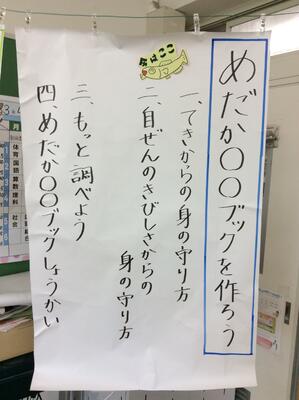 めだか〇〇ブックを作ろう
今はここ
一、てきからの身の守り方
二、自ぜんのきびしさからの
身の守り方
三、もっと調べよう
四、めだか〇〇ブックしょうかい
月
体育
国語
算数
理科
社会